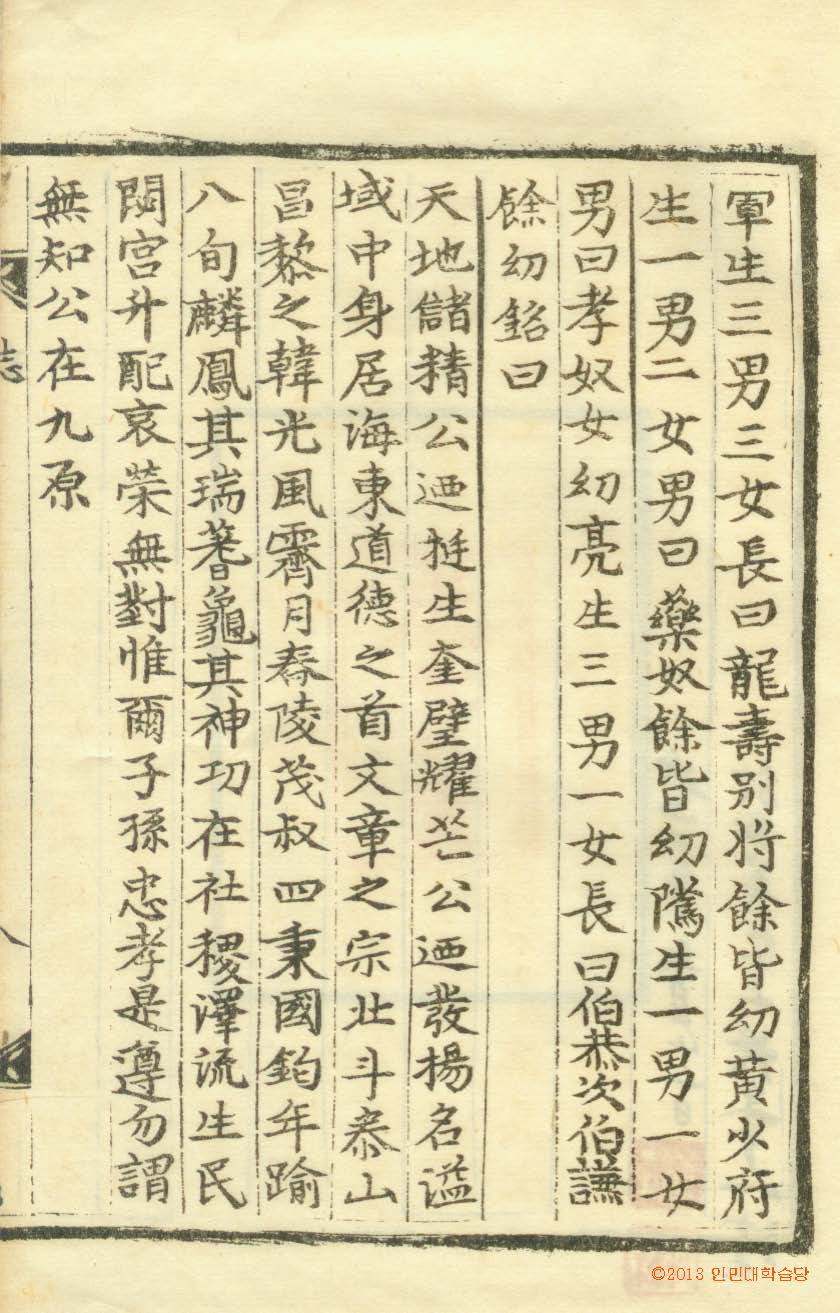 軍生三男三女長曰龍壽別將餘皆幼黃少府
生一男二女男曰藥奴餘皆幼隲生一男一女
男曰孝奴女幼亮生三男一女長曰伯恭次伯謙
餘幼銘曰
天地儲精公迺挺生奎璧耀芒公迺發揚名溢
域中身居海東道德之首文章之宗北斗泰山
昌黎之韓光風霽月舂陵茂叔四秉國鈞年踰
八旬麟鳳其瑞蓍龜其神功在社稷澤流生民
閟宮升配哀榮無對惟爾子孫忠孝是遵勿謂
無知公在九原
誌
八
©2013 인민대학습당